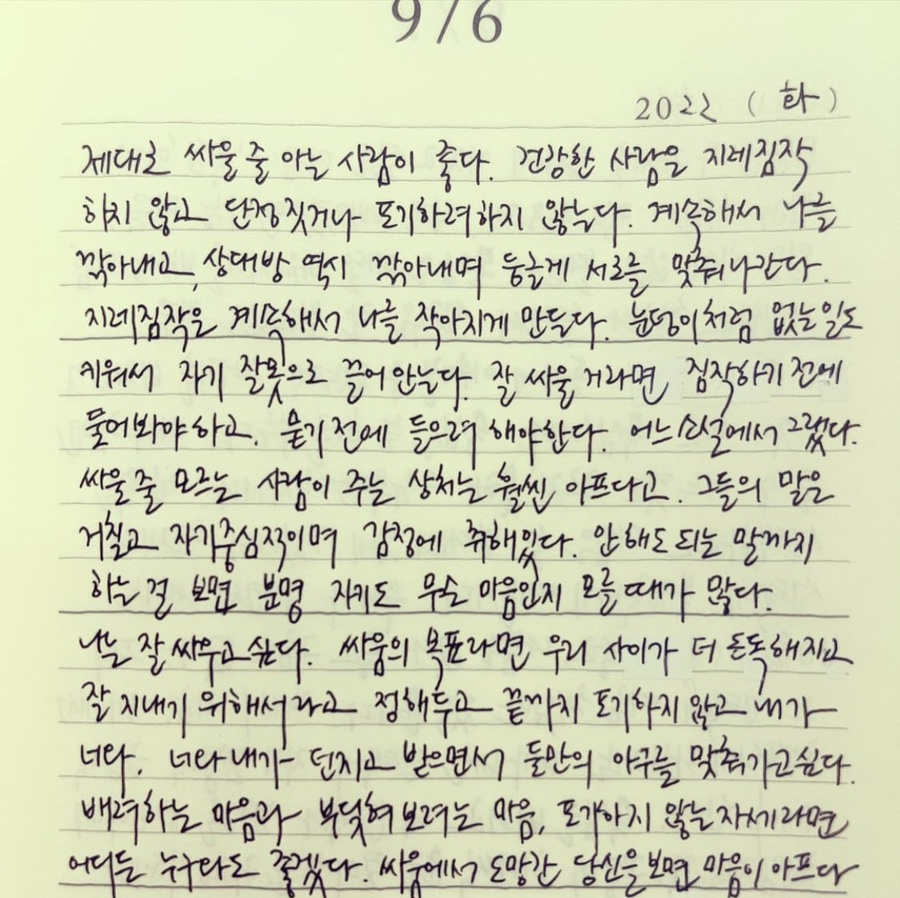 9/6
2022 (화)
제대로 싸울 줄 아는 사람이 좋다. 건강한 사람은 지레짐작
하지 않고 단정짓거나 포기하려하지 않는다. 계속해서 나를
깎아내고, 상대방 역시 깎아내며 둥글게 서로를 맞춰나간다.
지레짐작은 계속해서 나를 작아지게 만든다. 눈덩이처럼 없는일도
키워서 자기 잘못으로 끌어안는다. 잘 싸울거라면 짐작하기 전에
물어봐야하고, 묻기전에 들으려 해야한다. 어느소설에서 그랬다.
싸울 줄 모르는 사람이 주는 상처는 훨씬 아프다고. 그들의 말은
거칠고 자기중심적이며 감정에 취해있다. 안해도 되는 말까지
하는 걸 보면 분명 자키도 무슨 마음인지 모를 때가 많다.
나는 잘 싸우고싶다. 싸움의 목표라면 우리 사이가 더 돈독해지고
잘 지내기 위해서라고 정해두고 끝까지 포기하지 않고 내가
너라, 너라 내가 던지고 받으면서 둘만의 아구를 맞춰가고싶다.
배려하는 마음과 부딪혀보려는 마음, 포기하지 않는자세라면
어디든 누구라도 좋겠다. 싸움에서 도망간 당신을 보면 마음이 아프다